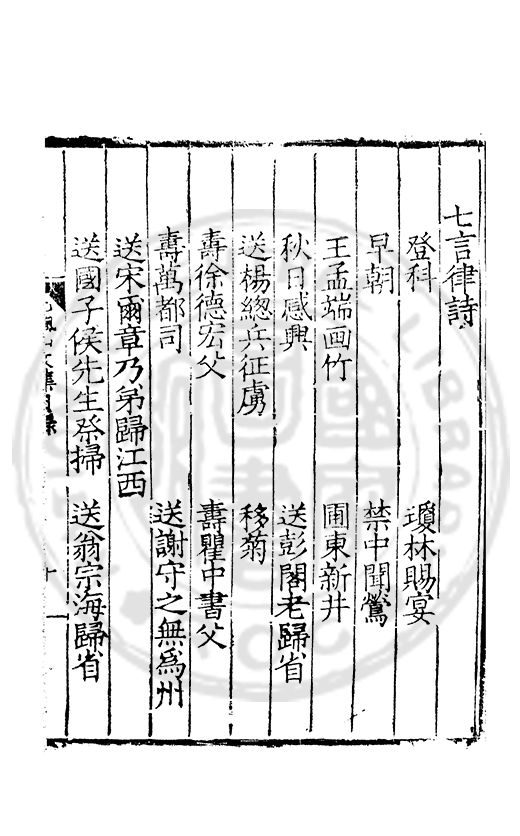 七言律詩
登科　瓊林賜宴
早朝　禁中聞鶯
王孟端画竹　圃東新井
秋日感興　送彭閣老歸省
送楊總兵征虜　移菊
壽徐德宏父　壽瞿中書父
壽萬都司　送謝守之無爲州
送宋爾章乃弟歸江西
送國子侯先生祭掃　送翁宗海歸省